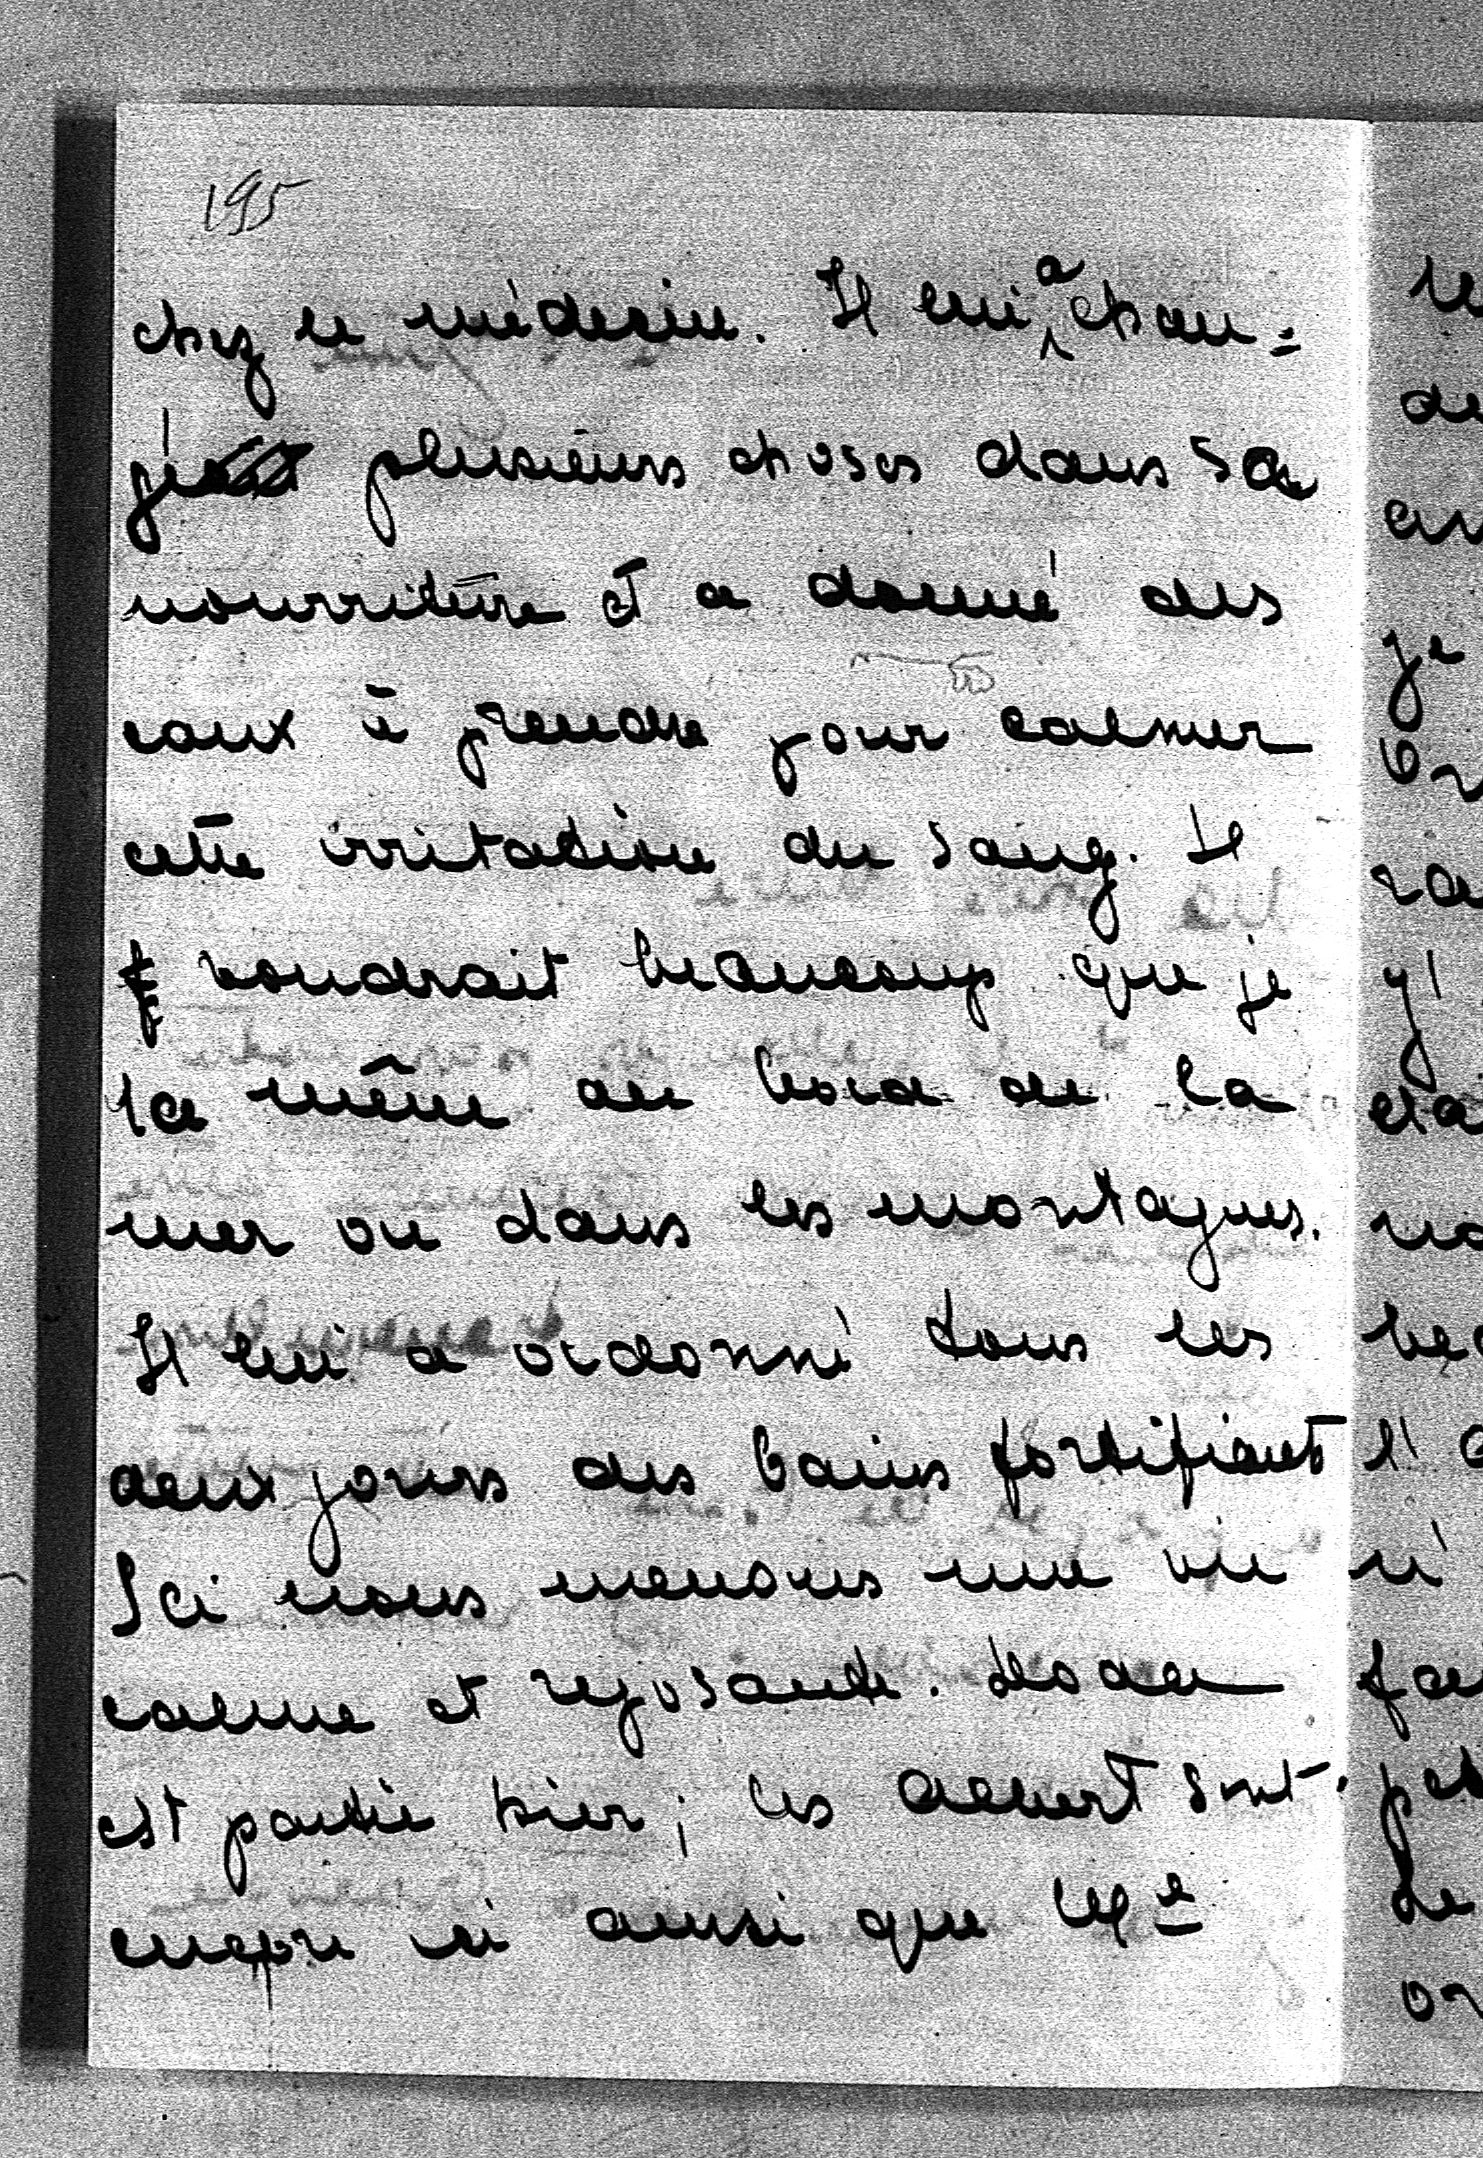 195
chez le médecin. Il lui a chan=
gé plusieurs choses dans sa
nourriture et a donné des
eaux à prendre pour calmer
cette irritation du sang. Il
voudrait beaucoup que je
la mène au bord de la
mer ou dans les montagnes.
Il lui a ordonné tous les
deux jours des bains fortifiants
Ici nous menons une vie
calme et reposante.
est partie hier; les Albert sont
encore ici ainsi que